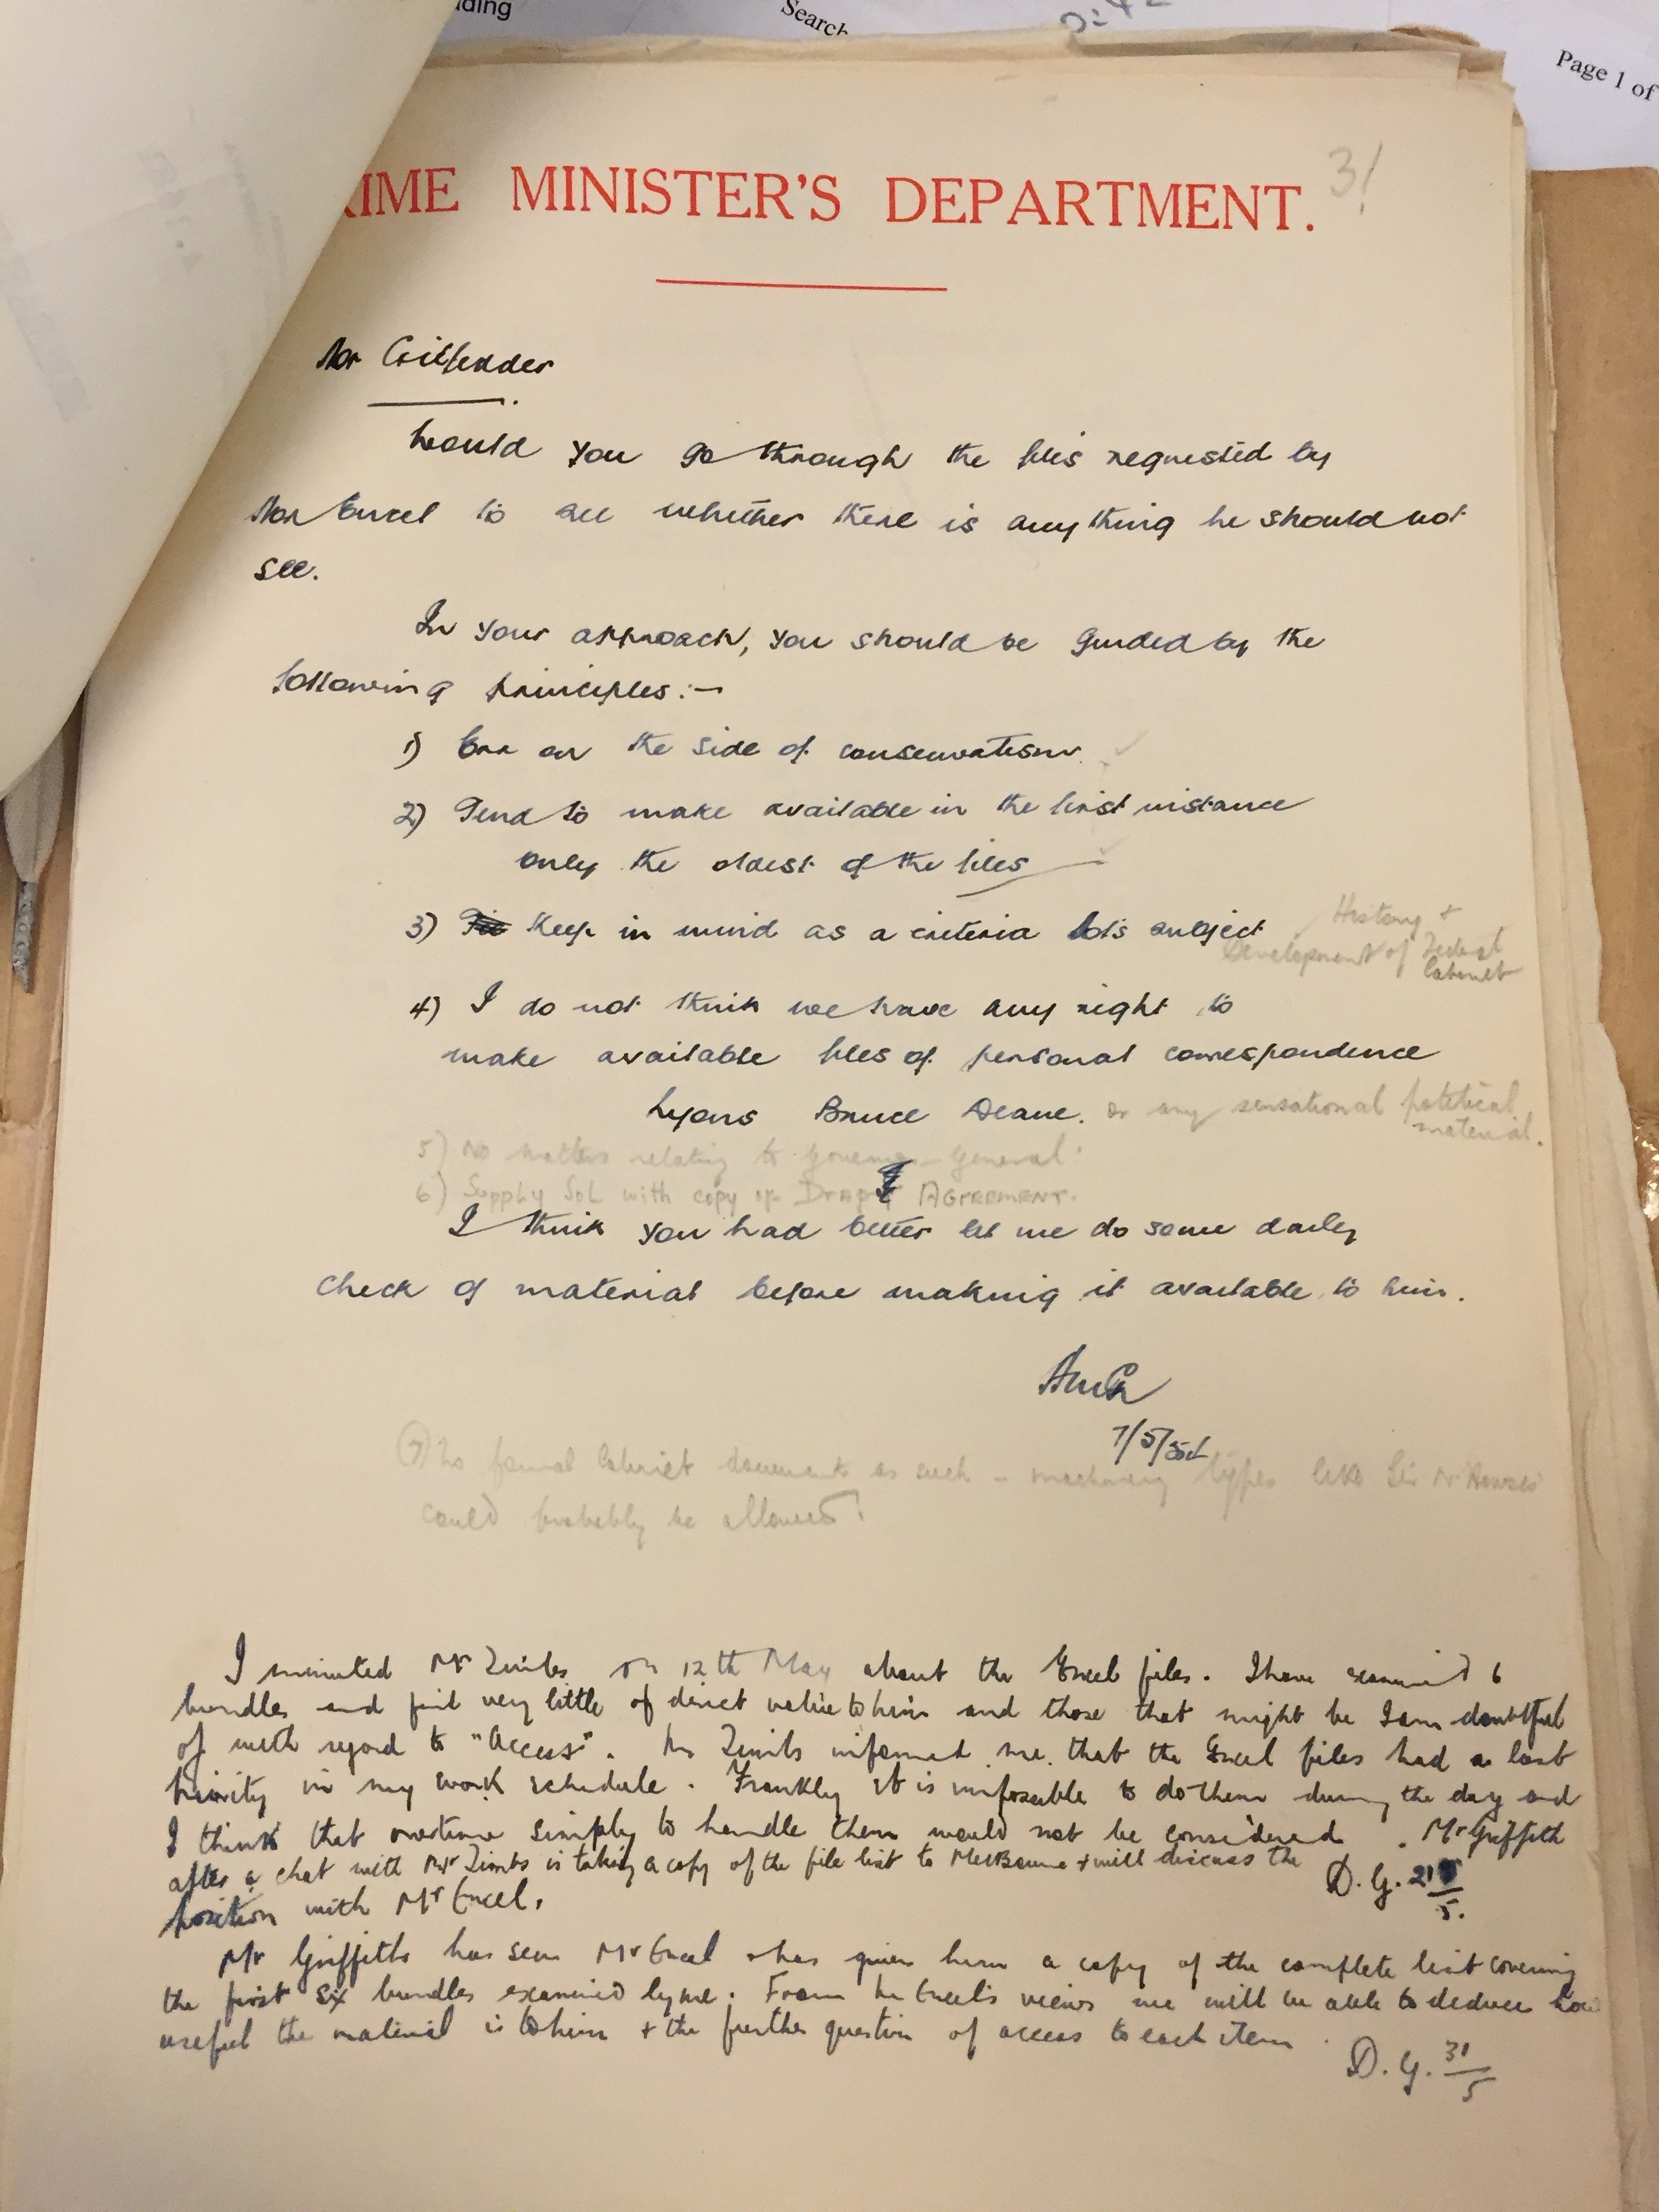 ding
Search
Page 1 of
IME MINISTER'S DEPARTMENT.
31
Mr
Would you go through the files requested by
Mr Encel to see whether there is anything he should not
see.
In your approach, you should be guided by the
following principles:-
1) Err on the side of conservatism.
2) Tend to make available in the first instance
only the oldest of the files
3) Keep in mind as a criteria his subject
History +
Development of Federal
Cabinet
4) I do not think we have any right to
make available files of personal correspondence
Lyons Bruce Deane. or any sensational political
material.
5) No matters relating to Governor-General
6) Supply Sol with copy of DRAFT AGREEMENT.
I think you had better let me do some daily
check of material before making it available to him.
7/5/54
7) No formal Cabinet documents as such - machinery types like Sir N
could probably be allowed.
I minuted Mr on 12th May about the Encel files. I have examined 6
bundles and find very little of direct value to him and those that might be I am doubtful
of with regard to "Access". Mr informed me that the Encel files had a last
priority in my work schedule. Frankly it is impossible to do them during the day and
I think that overtime simply to handle them would not be considered. Mr Griffith
after a chat with Mr is taking a copy of the file list to Melbourne + will discuss the
position with Mr Encel.
D.G. 21/5.
Mr Griffiths has seen Mr Encel & has given him a copy of the complete list covering
the first six bundles examined by me. From Mr Encel's views we will be able to deduce how
useful the material is to him + the further question of access to each item.
D.G. 31/5